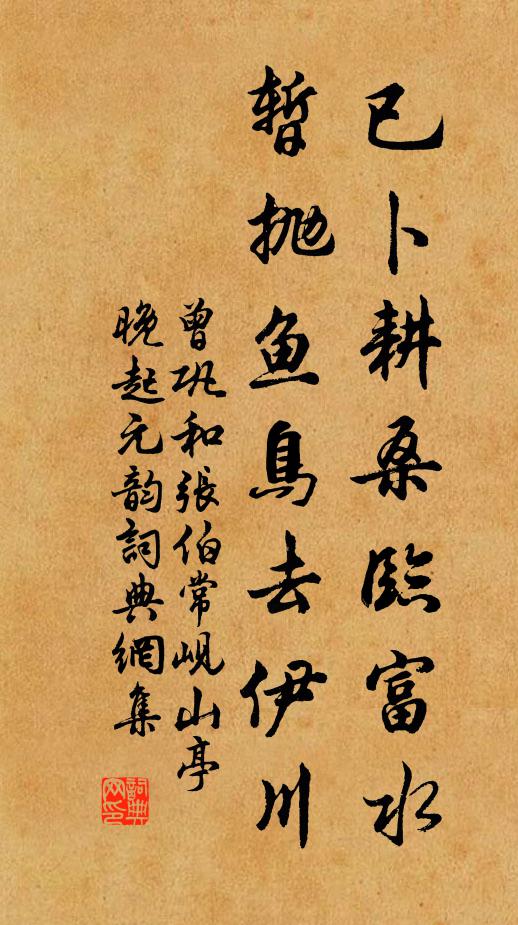 已卜耕桑臨富水
暫抛鱼鳥去伊川
曾巩和張伯常岘山亭
晚起元韵詞典網集
詞典
网印